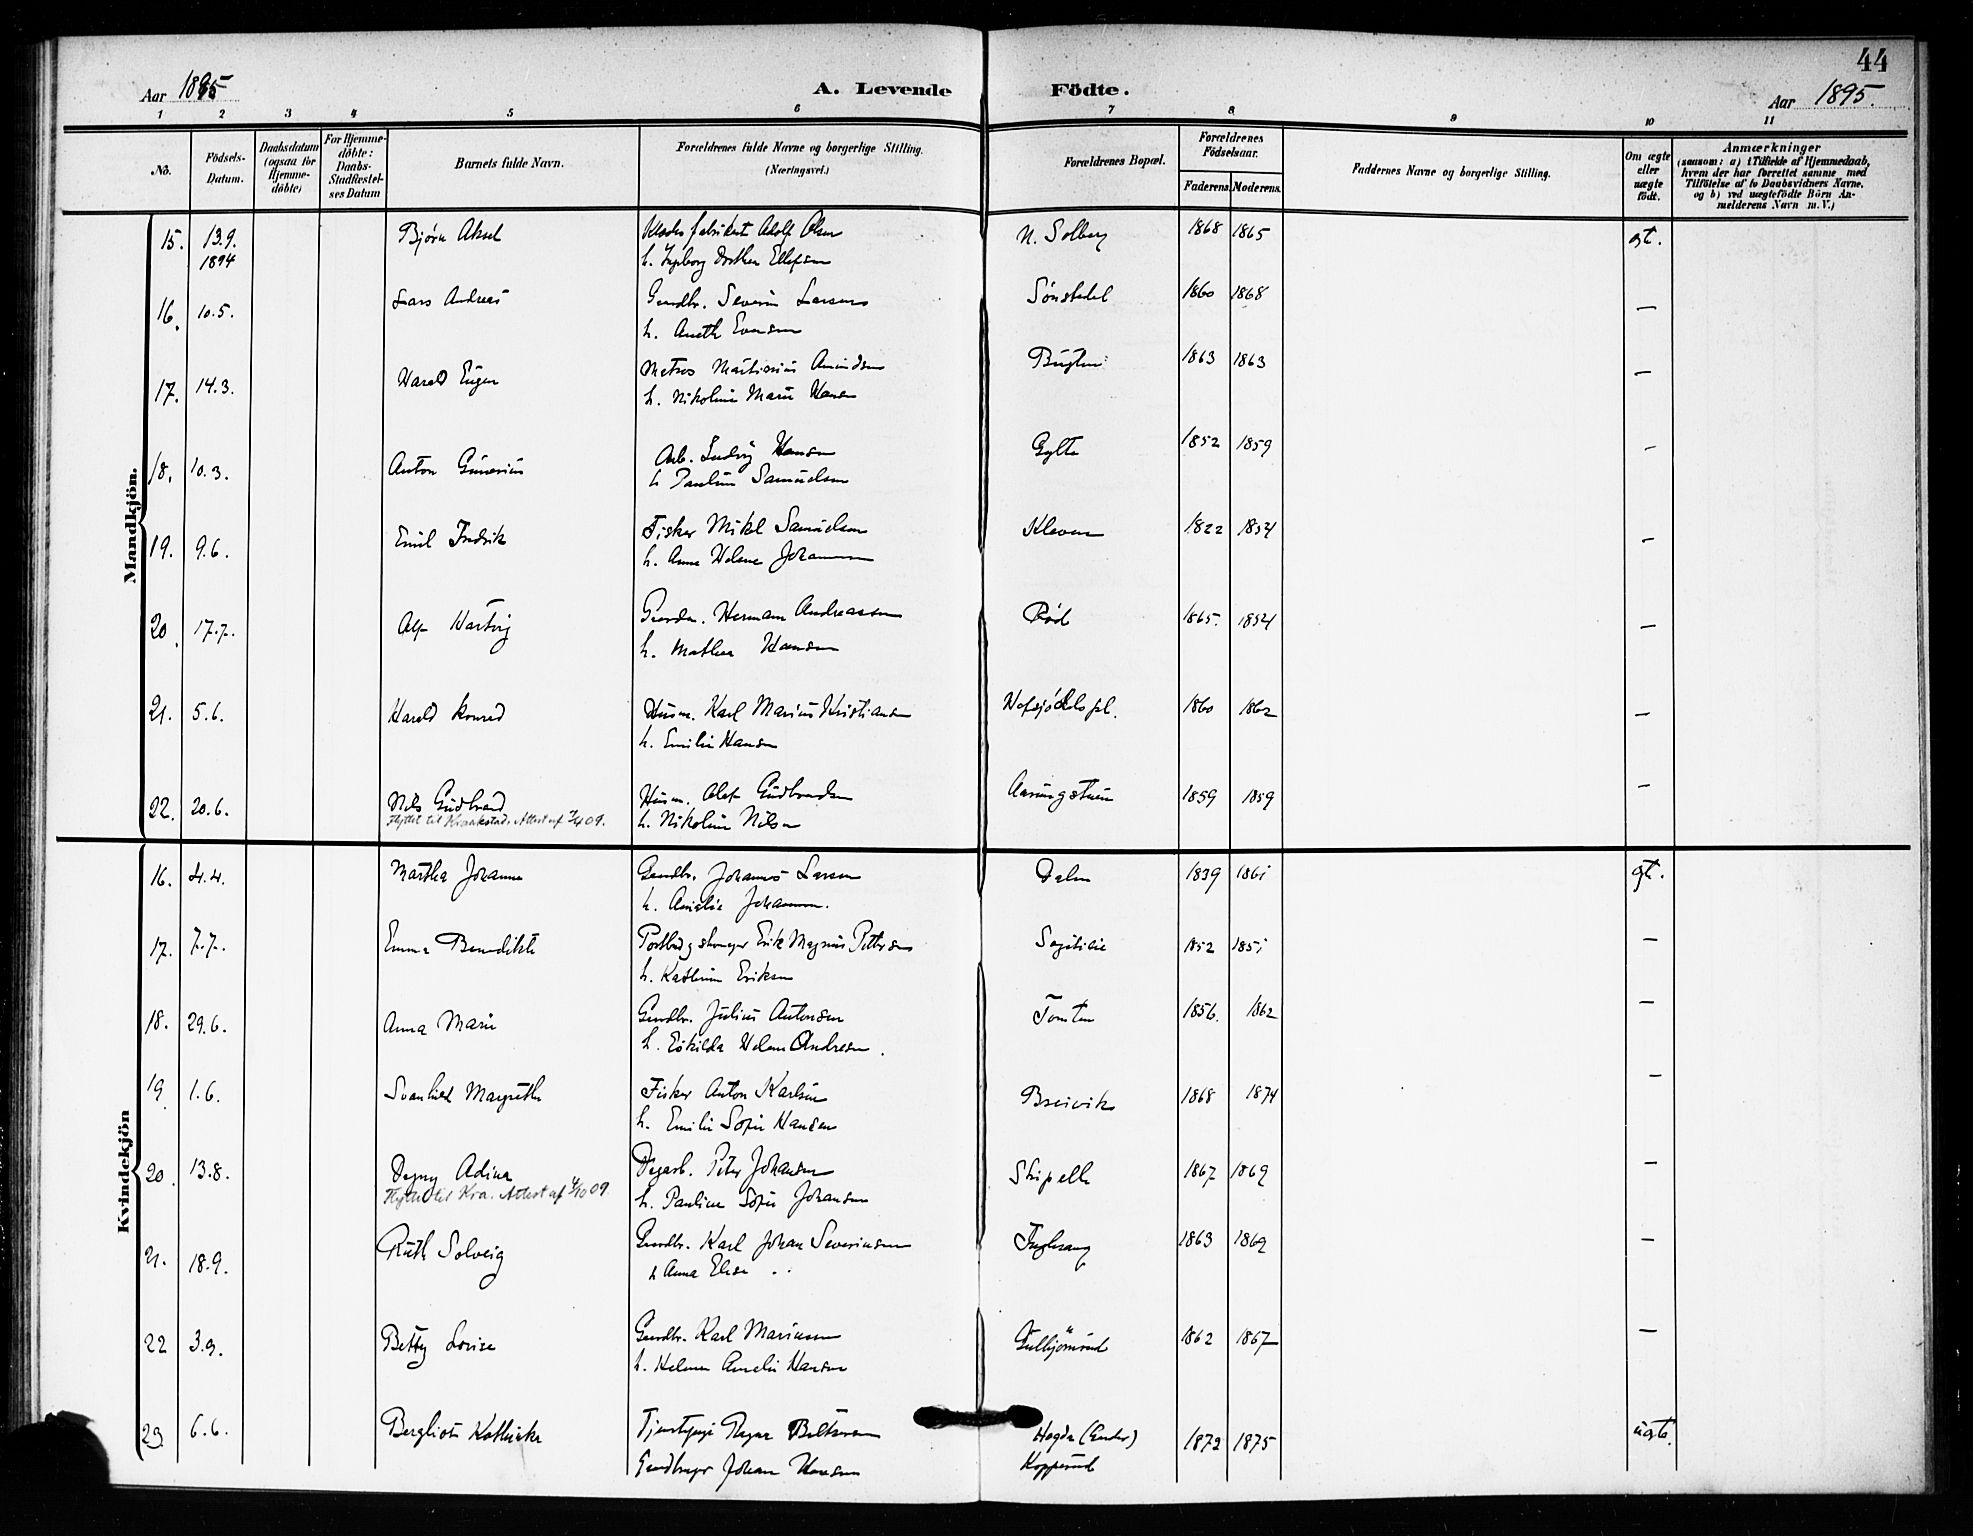 44
Aar 1895
A. Levende Födte.
Aar 1895.
1 2 3 4 5 6 7 8 9 10 11
No.
Födsels-Datum.
Daabsdatum (ogsaa for Hjemme-döbte)
For Hjemme-döbte: Daabs-Stadfæstel-ses Datum
Barnets fulde Navn.
Forældrenes fulde Navne og borgerlige Stilling.
(Næringsvei.)
Forældrenes Bopæl.
Forældrenes Födselsaar.
Faderens. Moderens.
Faddernes Navne og borgerlige Stilling.
Om ægte eller uægte födt.
Anmærkninger
(saasom: a) i Tilfælde af Hjemmedaab,
hvem der har forrettet samme med
Tilföielse af to Daabsvidners Navne,
og b) ved uægtefödte Börn An-
melderens Navn m. V.)
Mandkjön.
15. 13.9. 1894 Bjørn Aksel fabrikant Adolf Olsen N. Solberg 1868 1865 gt.
h. Ingborg Dorthea Ellefsen
16. 10.5. Lars Andreas Gaardbr. Severin Larsen 1860 1868 —
h. Aneth Evensen
17. 14.3. Harald Eugen Matros Martinius Amundsen Bugten 1863 1863 —
h. Nikoline Marie Hansen
18. 10.3. Anton Gunerius Arb. Ludvig Hansen Gylte 1852 1859 —
h. Pauline Samuelsen
19. 9.6. Emil Fredrik Fisker Mikl Samuelsen Kleven 1822 1854 —
h. Anne Helene Johannesen
20. 17.7. Alf Hartvig Herman Andreassen Rød 1865. 1854 —
h. Mathea Hansen
21. 5.6. Harald Konrad Husm. Karl Marius Kristiansen 1860 1862 —
h. Emilie Hansen
22. 20.6. Nils Gudbrand Husm. Olaf Gudbrandsen Aarungstuen 1859 1859 —
Flyttet til Kraakstad. Attest af 7/4 09. h. Nikoline Nilsen
Kvindekjön
16. 4.4. Martha Johanne Gaardbr. Johannes Larsen Dalen 1839 1861 gt.
h. Amalie Johannesen.
17. 7.7. Emma Benedikte Erik Magnus Pettersen 1852 1851 —
h. Kathrine Eriksen
18. 29.6. Anna Marie Gaardbr. Julius Antonsen Tomten 1856. 1862 —
h. Eskilda Helene Andresen.
19. 1.6. Svanhild Magrethe Fisker Anton Karlsen Breivik 1868 1874 —
h. Emilie Sofie Hansen
20. 13.8. Dagny Adina Dagarb. Peter Johansen Skipelle 1867 1869 —
Flyttet til Kra. Attest af 4/10 09. h. Pauline Sofie Johansen
21. 18.9. Ruth Solveig Gaardbr. Karl Johan Severinsen Fuglesang 1863 1869 —
h Anna Elise
22 3.9. Betty Lovise Gaardbr. Karl Mariusen 1862 1867 —
h. Helene Amalie Hansen
23 6.6. Bergliot Kathinka Tjenestepige Ragna Hogda (Emder) 1872 1875 uægte.
Gaardbruger Johan Hansen Kopperud